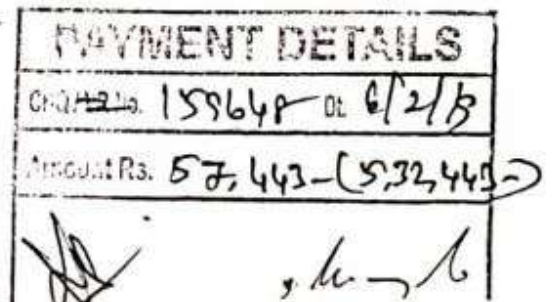 PAYMENT DETAILS
CHQ. No. 159648 Dt. 6/2/13
Amount Rs. 57,443-(5,32,443-)